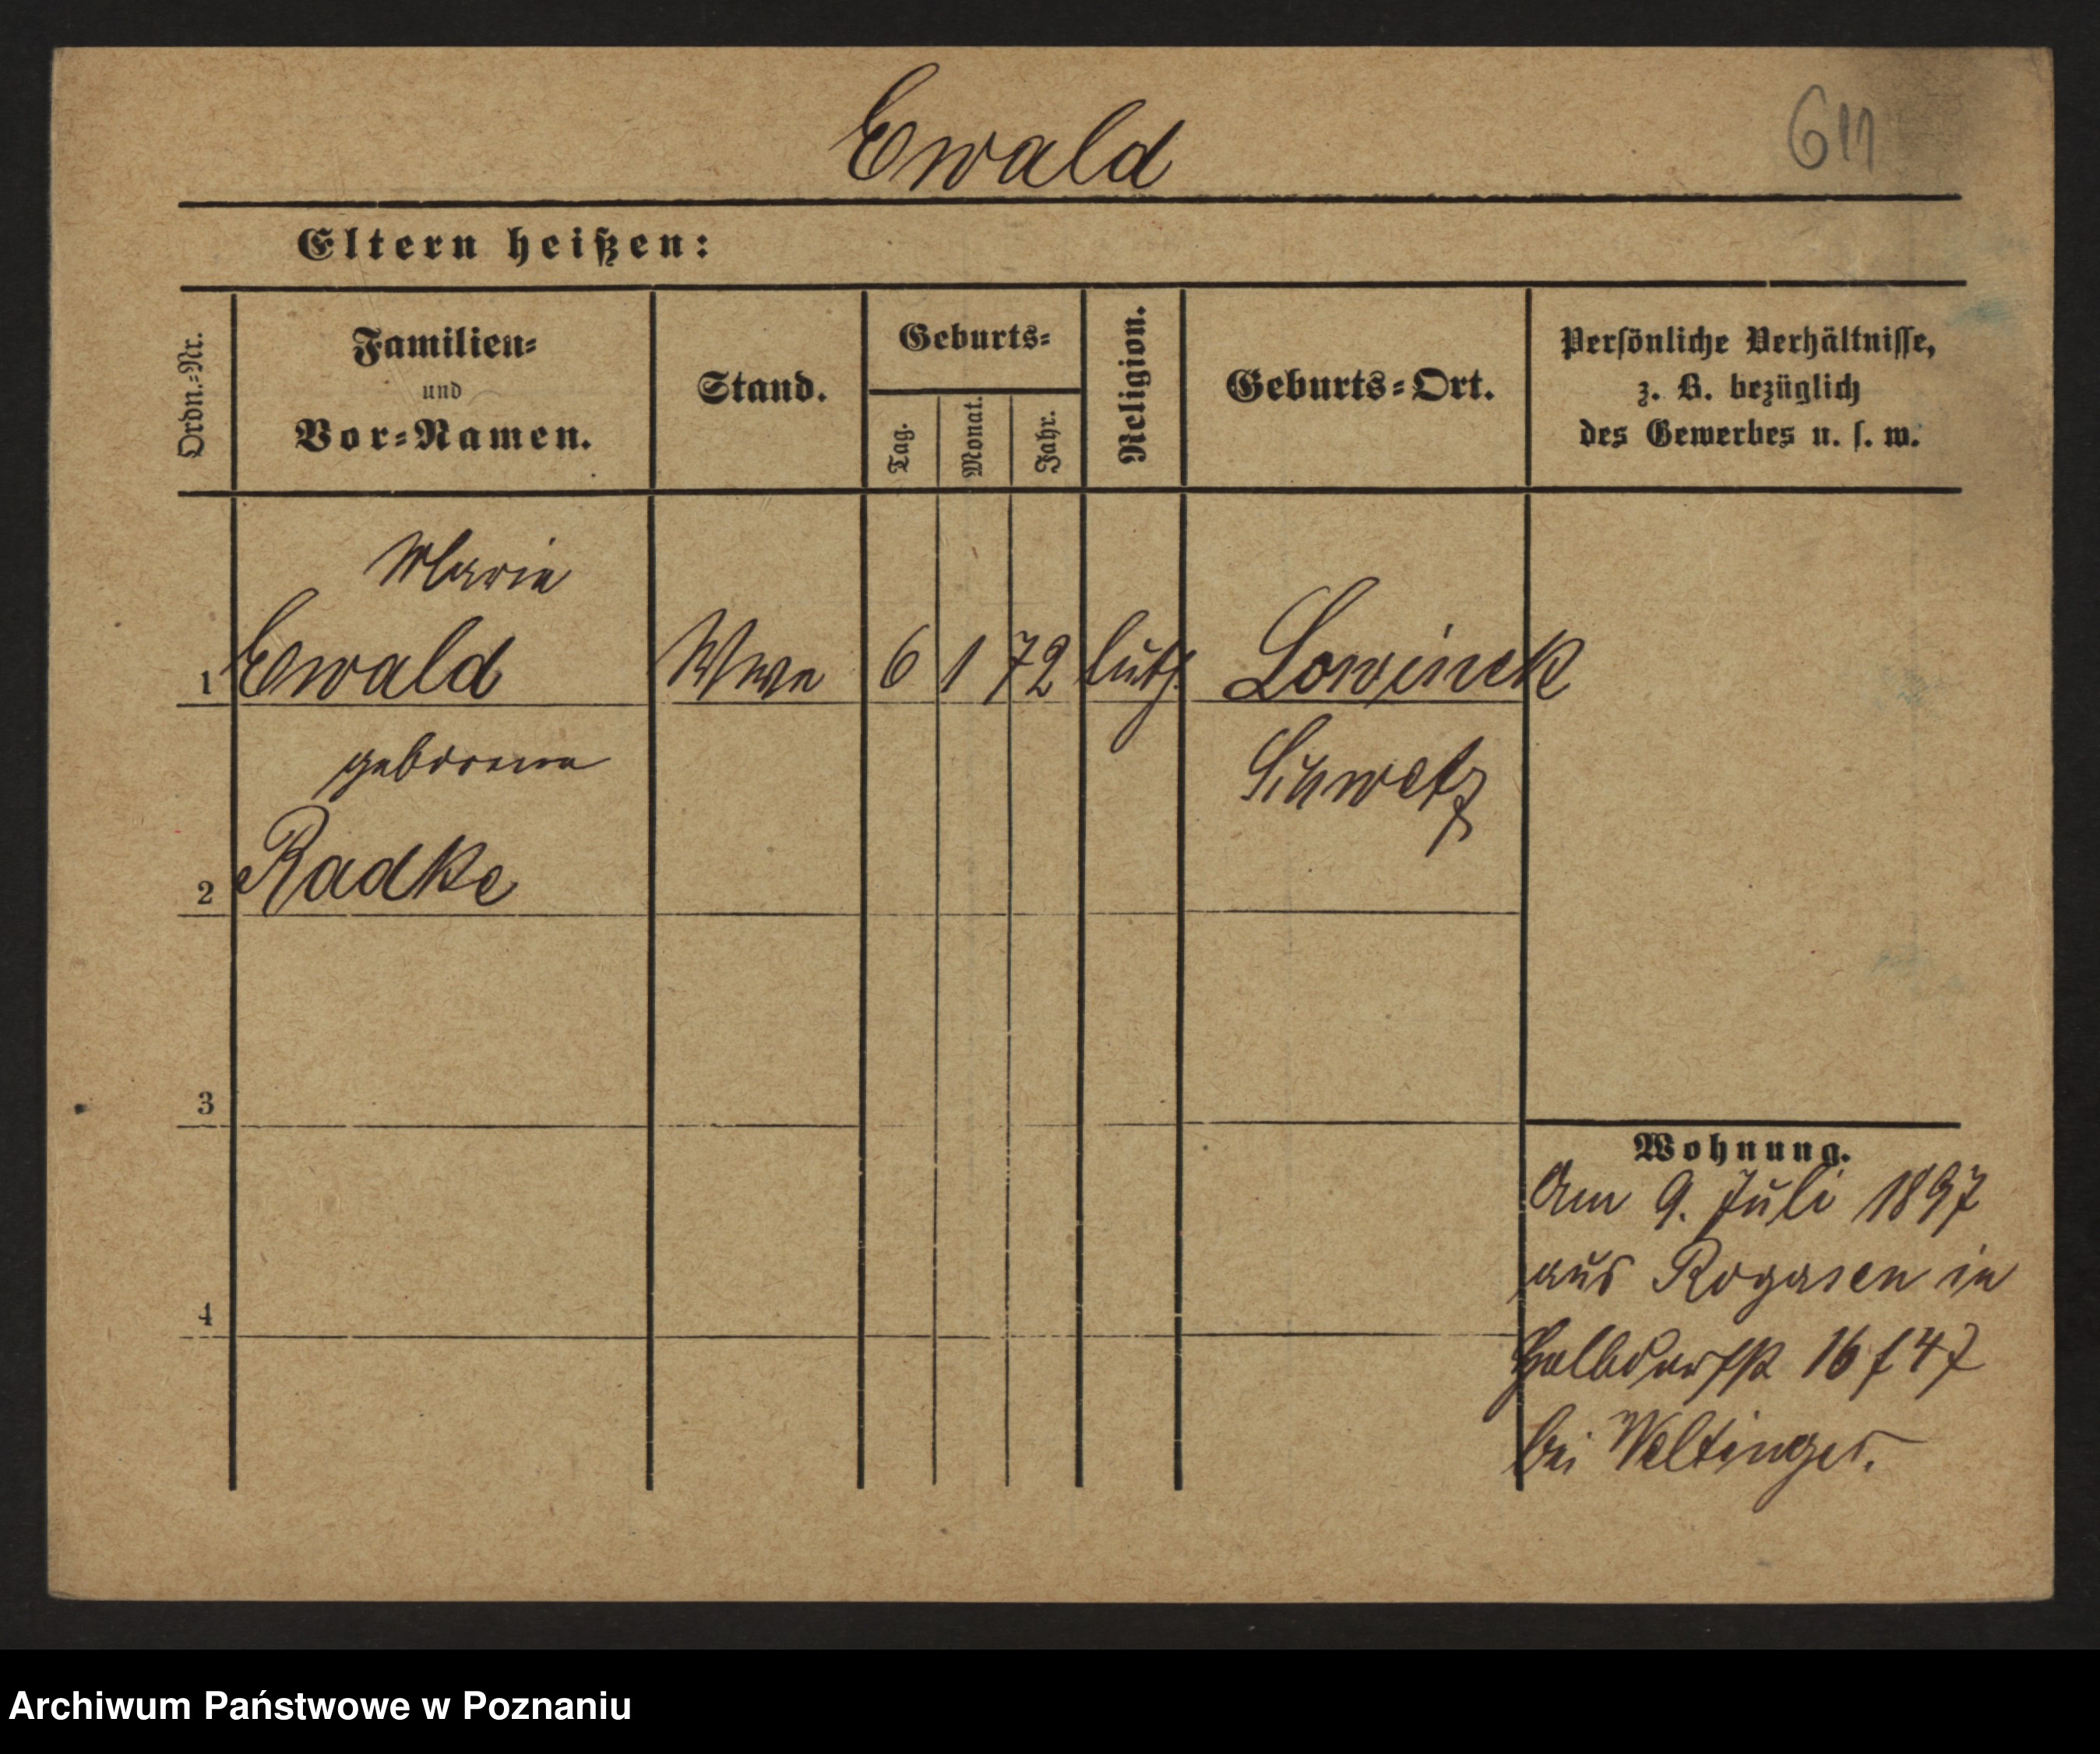 Ewald
611
Eltern heißen:
Ordn.-Nr.
Familien-
und
Vor-Namen.
Stand.
Geburts-
Tag.
Monat.
Jahr.
Religion.
Geburts-Ort.
Persönliche Verhältnisse,
z. B. bezüglich
des Gewerbes u. s. w.
Marie
1 Ewald Wwe 6 1 72 luth. Lowinek
geborene Schwetz
2 Radke
3
Wohnung.
Am 9. Juli 1897
aus Rogasen in
4
Halbdorfstr 16 f 47
bei Weltinger.
Archiwum Państwowe w Poznaniu